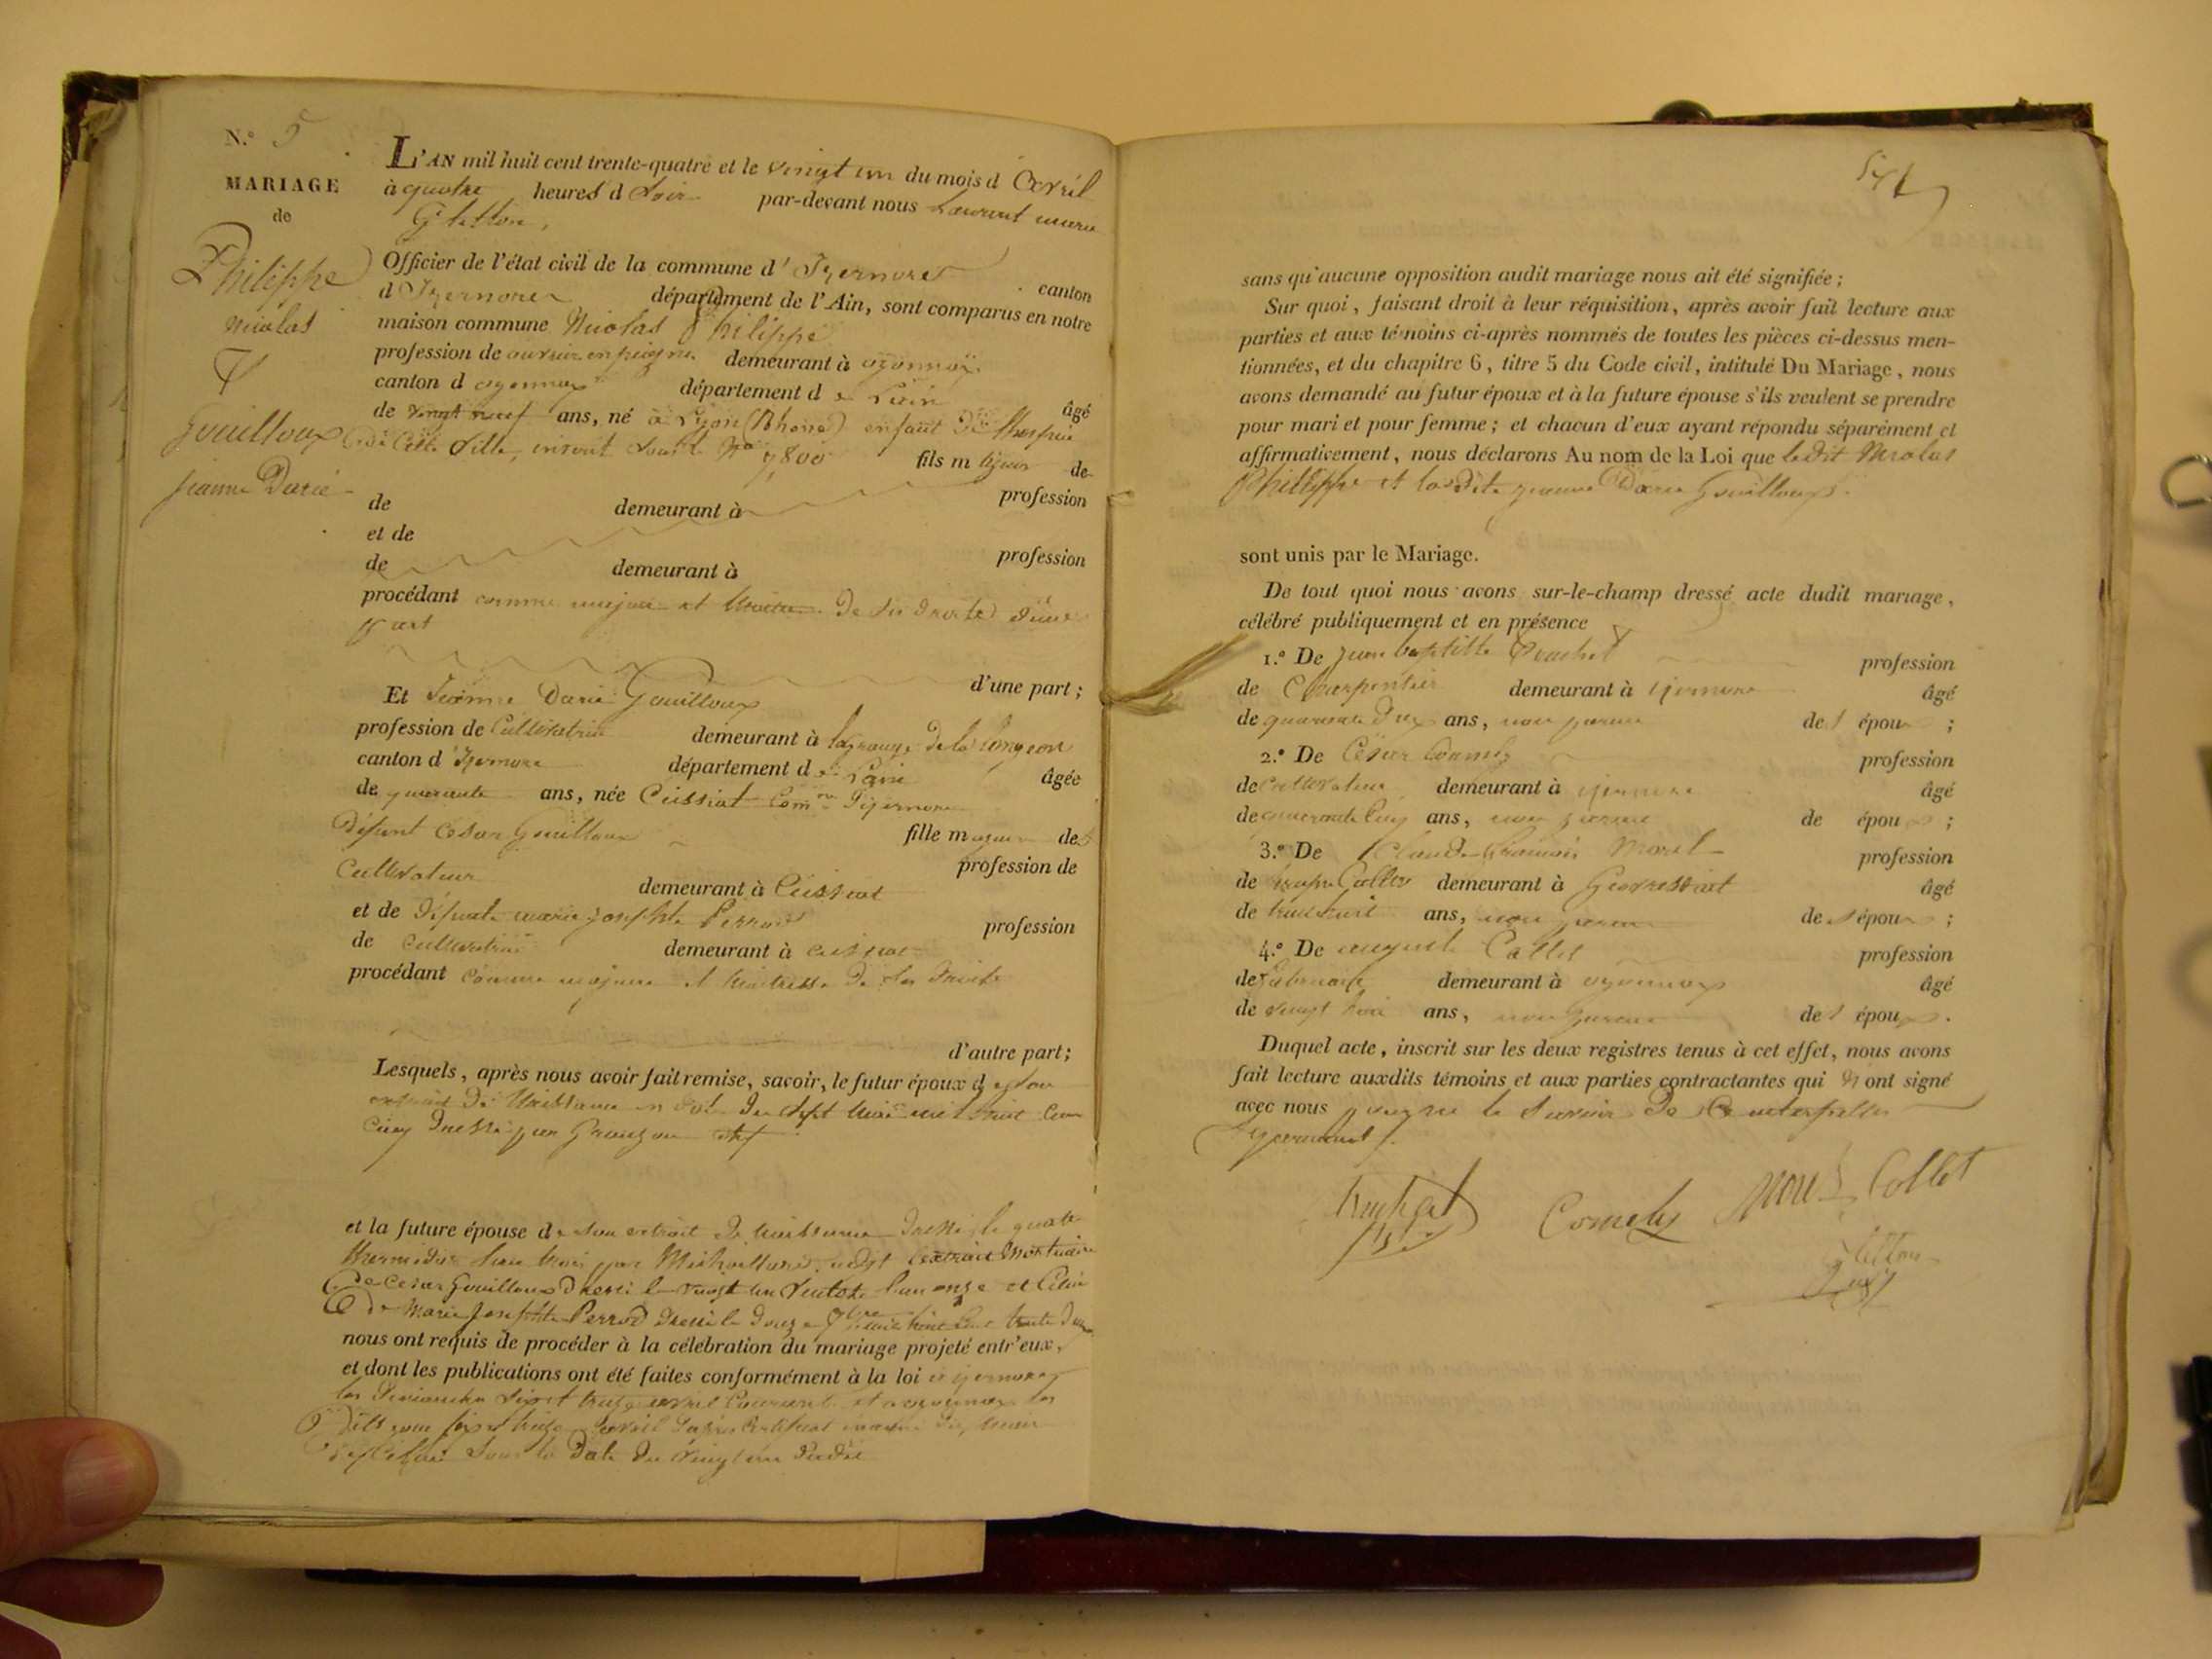 N.° 5
MARIAGE
de
Philippe
Nicolas
&
Gouilloux
Jeanne Darie
L'AN mil huit cent trente-quatre et le vingt un du mois d'Avril
à quatre heures d Soir par-devant nous Laurent marie
Gletton,
Officier de l'état civil de la commune d' Izernore canton
d'Izernore département de l'Ain, sont comparus en notre
maison commune Nicolas Philippe
profession de ouvrier en peigne demeurant à oyonnax
canton d oyonnax département de L'ain âgé
de vingt neuf ans, né à Lyon (Rhone) enfant De l'hospice
de Cette Ville, inscrit sous le No 7800 fils m de
de demeurant à profession
et de
de demeurant à profession
procédant comme majeur et Maitre De ses Droits d'une
part
d'une part ;
Et Jeanne Darie Gouilloux
profession de Cultivatrice demeurant à lagrange De la
canton d'Izernore département de L'ain âgée
de quarante ans, née Ceissiat Com.ne D'izernore
Défunt César Gouilloux fille majeure de
Cultivateur profession de
demeurant à Ceissiat
et de Défunte marie josephte Perrod profession
de cultivatrice demeurant à ceissiat
procédant comme majeure et Maitresse De ses Droits
d'autre part ;
Lesquels, après nous avoir fait remise, savoir, le futur époux de son
extrait De Naissance en date Du Sept Mai mil huit Cent
Cinq Dressé par
et la future épouse de son extrait De Naissance Dressé le quatre
thermidor l'an trois par l'extrait Mortuaire
de Cesar Gouilloux Dressé le vingt un Ventose l'an onze et Celui
De Marie Josephte Perrod Dressé le Douze mil huit Cent trente Deux
nous ont requis de procéder à la célébration du mariage projeté entr'eux,
et dont les publications ont été faites conformément à la loi à izernore
les Dimanches Six et treize avril Courant et à oyonnax les
Dits jour Six et treize avril Certificat
Sous la Date Du Vingt un Dudit
sans qu'aucune opposition audit mariage nous ait été signifiée ;
Sur quoi, faisant droit à leur réquisition, après avoir fait lecture aux
parties et aux témoins ci-après nommés de toutes les pièces ci-dessus men-
tionnées, et du chapitre 6, titre 5 du Code civil, intitulé Du Mariage, nous
avons demandé au futur époux et à la future épouse s'ils veulent se prendre
pour mari et pour femme ; et chacun d'eux ayant répondu séparément et
affirmativement, nous déclarons Au nom de la Loi que ledit Nicolas
Philippe et la Dite Jeanne Darie Gouilloux.
sont unis par le Mariage.
De tout quoi nous avons sur-le-champ dressé acte dudit mariage,
célébré publiquement et en présence
1.° De jean baptiste profession
de Charpentier demeurant à izernore âgé
de quarante Deux ans, non parent des époux ;
2.° De César Comely profession
de cultivateur demeurant à izernore âgé
de quarante Cinq ans, non parent de époux ;
3.° De Claude françois Morel profession
de demeurant à Geovressiat âgé
de trente huit ans, non parent des époux ;
4.° De auguste Collet profession
de demeurant à oyonnax âgé
de vingt trois ans, non parent des époux.
Duquel acte, inscrit sur les deux registres tenus à cet effet, nous avons
fait lecture auxdits témoins et aux parties contractantes qui n'ont signé
avec nous pour ne le Savoir De Ce interpellés
Comely Morel Collet
Gletton